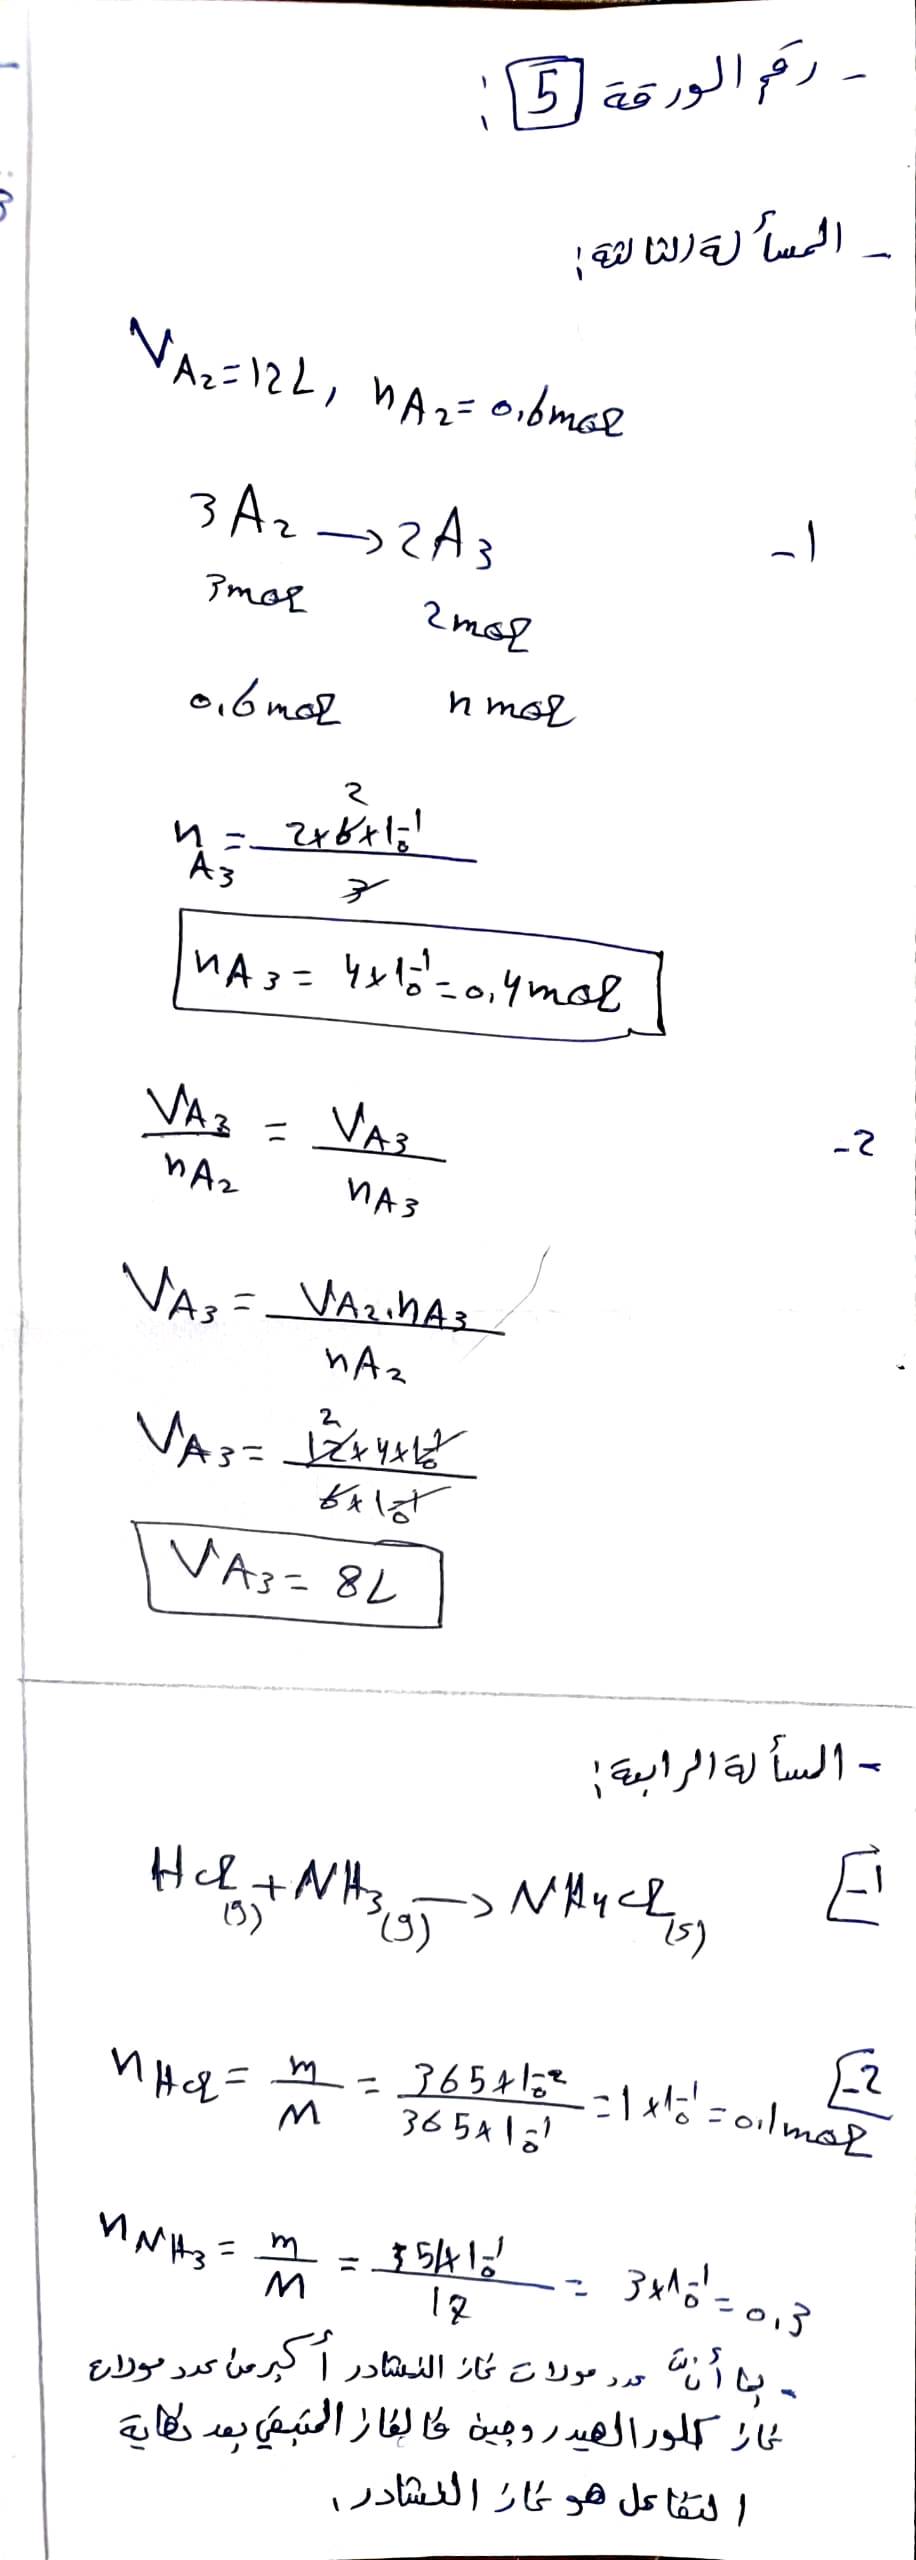 - رقم الورقة 5 :
- المسألة الثالثة :
V A2 = 12L , n A2 = 0,6 mol
3A2 → 2A3 -1
3mol 2mol
0,6 mol n mol
n A3 = 2×6×10^-1 / 3 2
n A3 = 4×10^-1 = 0,4 mol
V A3 / n A2 = V A3 / n A3 -2
V A3 = V A2 . n A3 / n A2
V A3 = 12×4×10^-1 / 6×10^-1 2
V A3 = 8L
- السألة الرابعة :
HCl(g) + NH3(g) → NH4Cl(s) -1
n HCl = m/M = 365×10^-2 / 365×10^-1 = 1×10^-1 = 0,1 mol -2
n NH3 = m/M = 51×10^-1 / 17 = 3×10^-1 = 0,3
- بما أنّ عدد مولات غاز النشادر أكبر من عدد مولات
غاز كلور الهيدروجين فالغاز المتبقي بعد نهاية
التفاعل هو غاز النشادر .